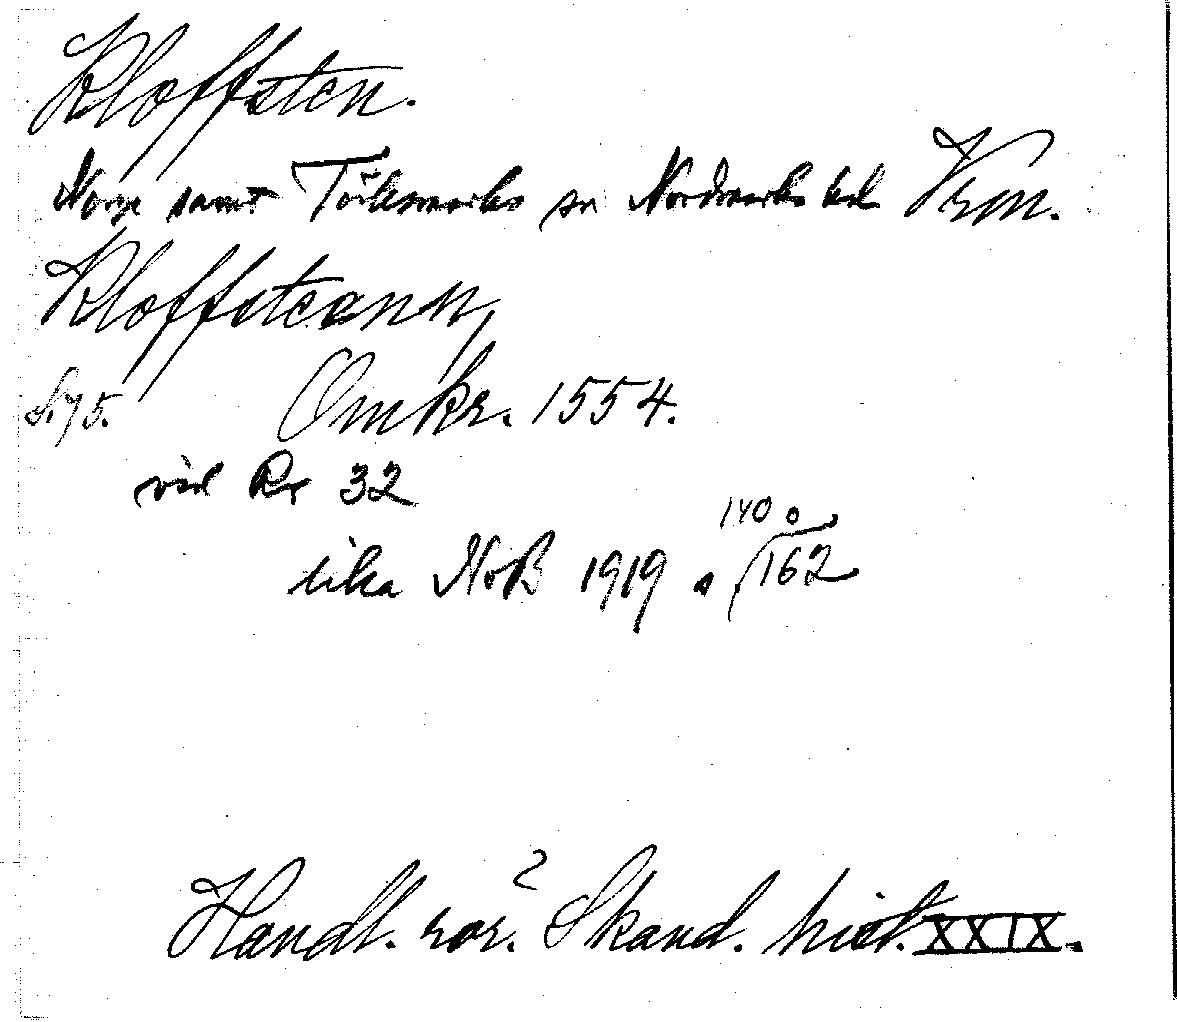 Kloffsten.
Norge samt Töcksmarks sn Nordmarks hd Vrm.
Kloffsteann,
S. 75. Omkr. 1554.
vid Rr 32
lika NoB 1919 s 140 o 162
Handl. rör. Skand. hist. XXIX.